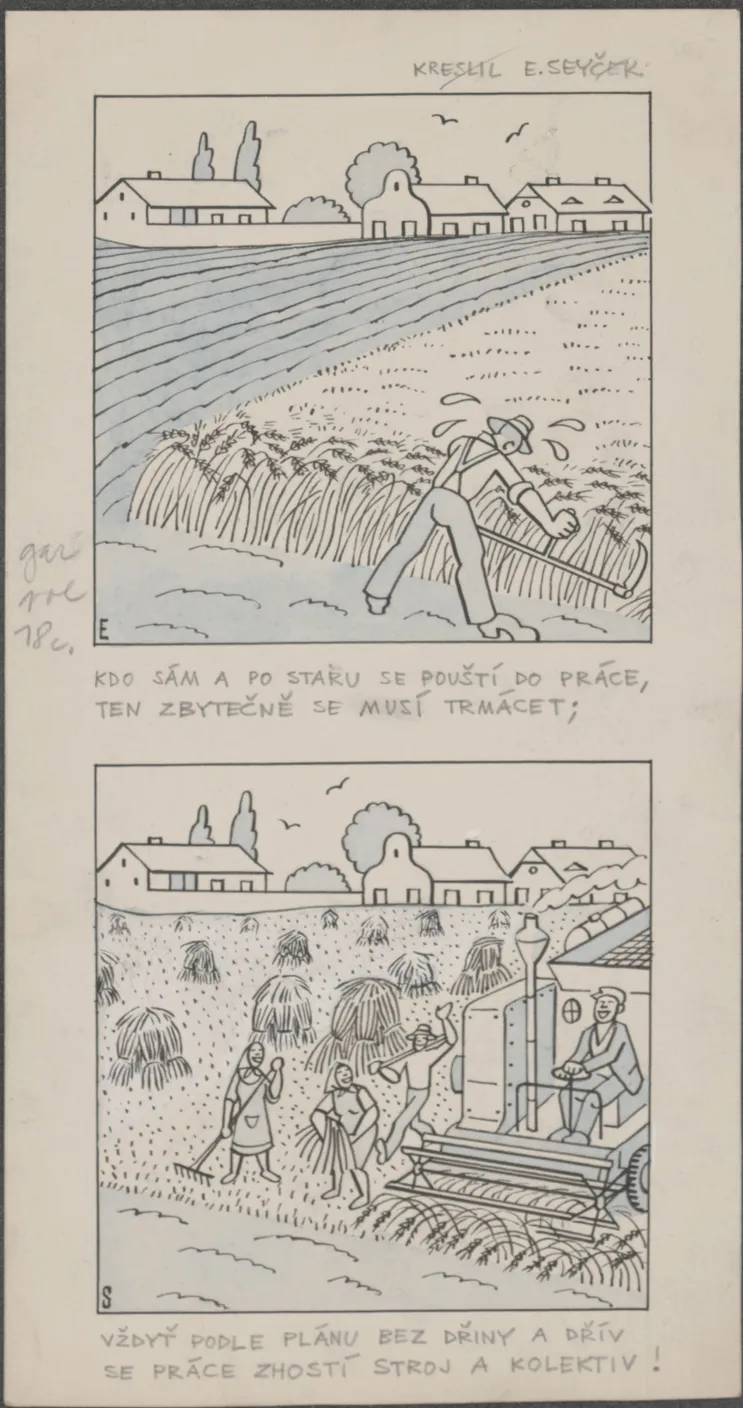 KRESLIL E. SEYČEK
E
KDO SÁM A PO STARU SE POUŠTÍ DO PRÁCE,
TEN ZBYTEČNĚ SE MUSÍ TRMÁCET;
S
VŽDYŤ PODLE PLÁNU BEZ DŘINY A DŘÍV
SE PRÁCE ZHOSTÍ STROJ A KOLEKTIV!